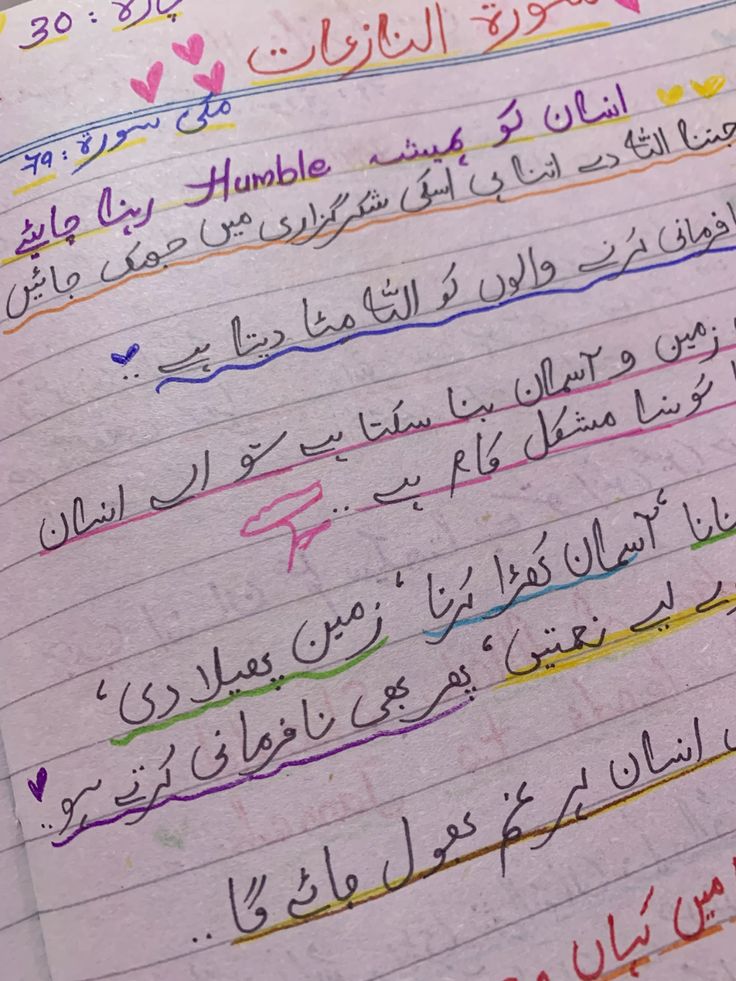 پارہ : 30
سورۃ النازعات
مکی سورۃ : 79
انسان کو ہمیشہ Humble رہنا چاہیئے
جتنا اللہ دے اتنا ہی اسکی شکرگزاری میں جھک جائیں
نافرمانی کرنے والوں کو اللہ مٹا دیتا ہے ..
زمین و آسمان بنا سکتا ہے تو اے انسان
کونسا مشکل کام ہے ..
آسمان کھڑا کرنا ‘ زمین پھیلا دی ‘
لیے نعمتیں ‘ پھر بھی نافرمانی کرتے ہو ..
انسان ہر غم بھول جائے گا ..
میں کہاں